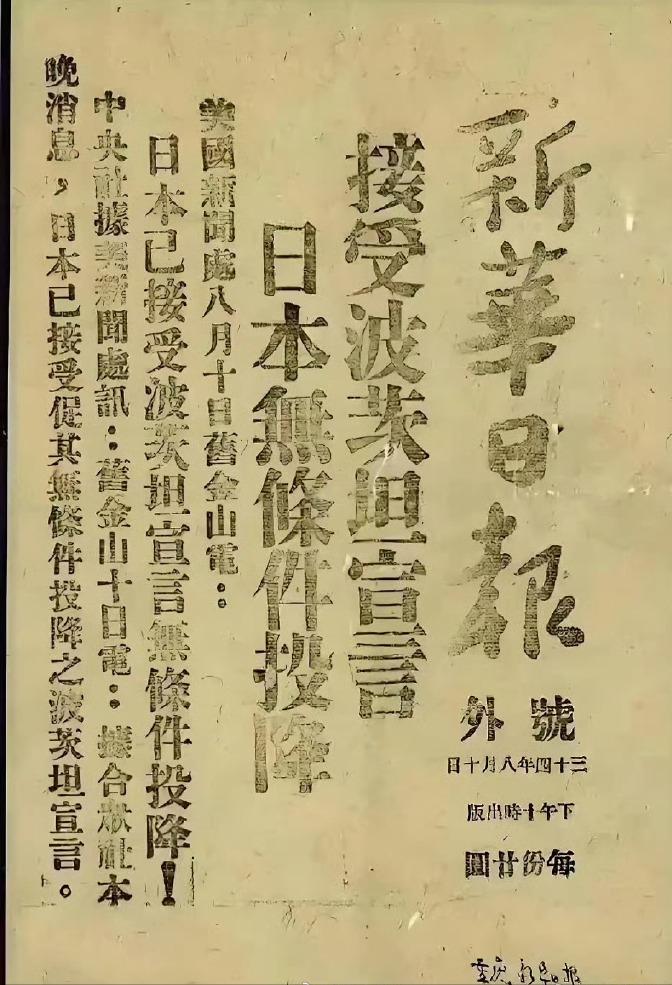 新華日報
號外
三十四年八月十日
下午十時出版
每份廿圓
接受波茨坦宣言
日本無條件投降
美國新聞處八月十日舊金山電：
日本已接受波茨坦宣言無條件投降！
中央社據美新聞處訊：舊金山十日電：據合衆社本
晚消息，日本已接受促其無條件投降之波茨坦宣言。
重庆新华日报